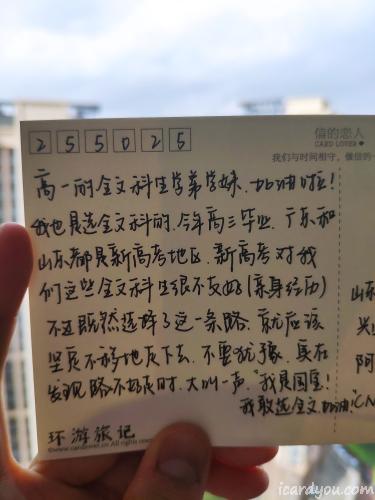 255025
信的恋人
CARD LOVER
我们与时间相守，做信的一
高一的全文科生学弟学妹，加油啦！
我也是选全文科的，今年高三毕业，广东和
山东都是新高考地区，新高考对我
们这些全文科生很不友好（亲身经历）
不过既然选择了这一条路，就应该
坚定不移地走下去，不要犹豫，实在
发现路不好走时，大叫一声，“我是国宝！
我敢选全文，加油！”CN
山东
兴
阿
环游旅记
©www.cardlover.cn All rights rese
icardyou.com